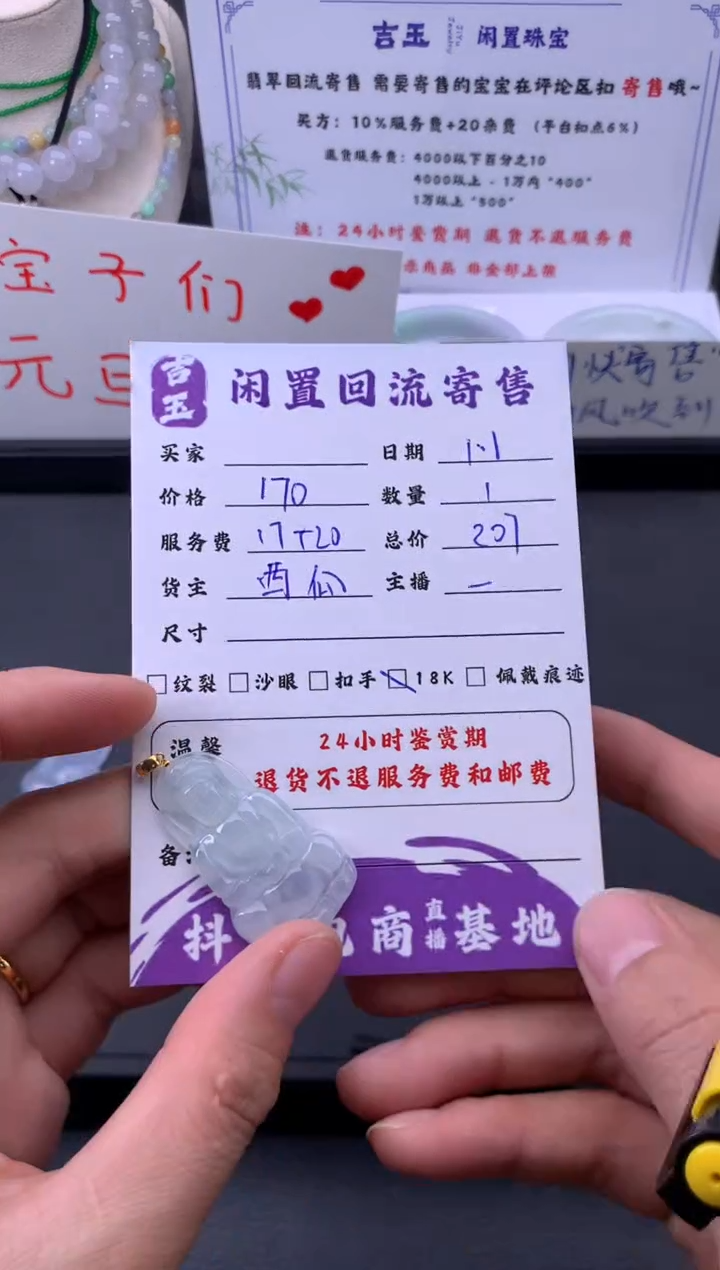 吉玉 闲置珠宝
翡翠回流寄售 需要寄售的宝宝在评论区扣 寄售 哦~
买方：10%服务费+20杂费 （平台扣点6%）
退货服务费：4000以下百分之10
4000以上 - 1万内 "400"
1万以上 "500"
注：24小时鉴赏期 退货不退服务费
宝子们
元旦
寄售
吉玉 闲置回流寄售
买家 日期 1.1
价格 170 数量 1
服务费 17+20 总价 207
货主 西瓜 主播 一
尺寸
纹裂 沙眼 扣手 18K 佩戴痕迹
温馨 24小时鉴赏期
退货不退服务费和邮费
备:
抖 商 直播 基地